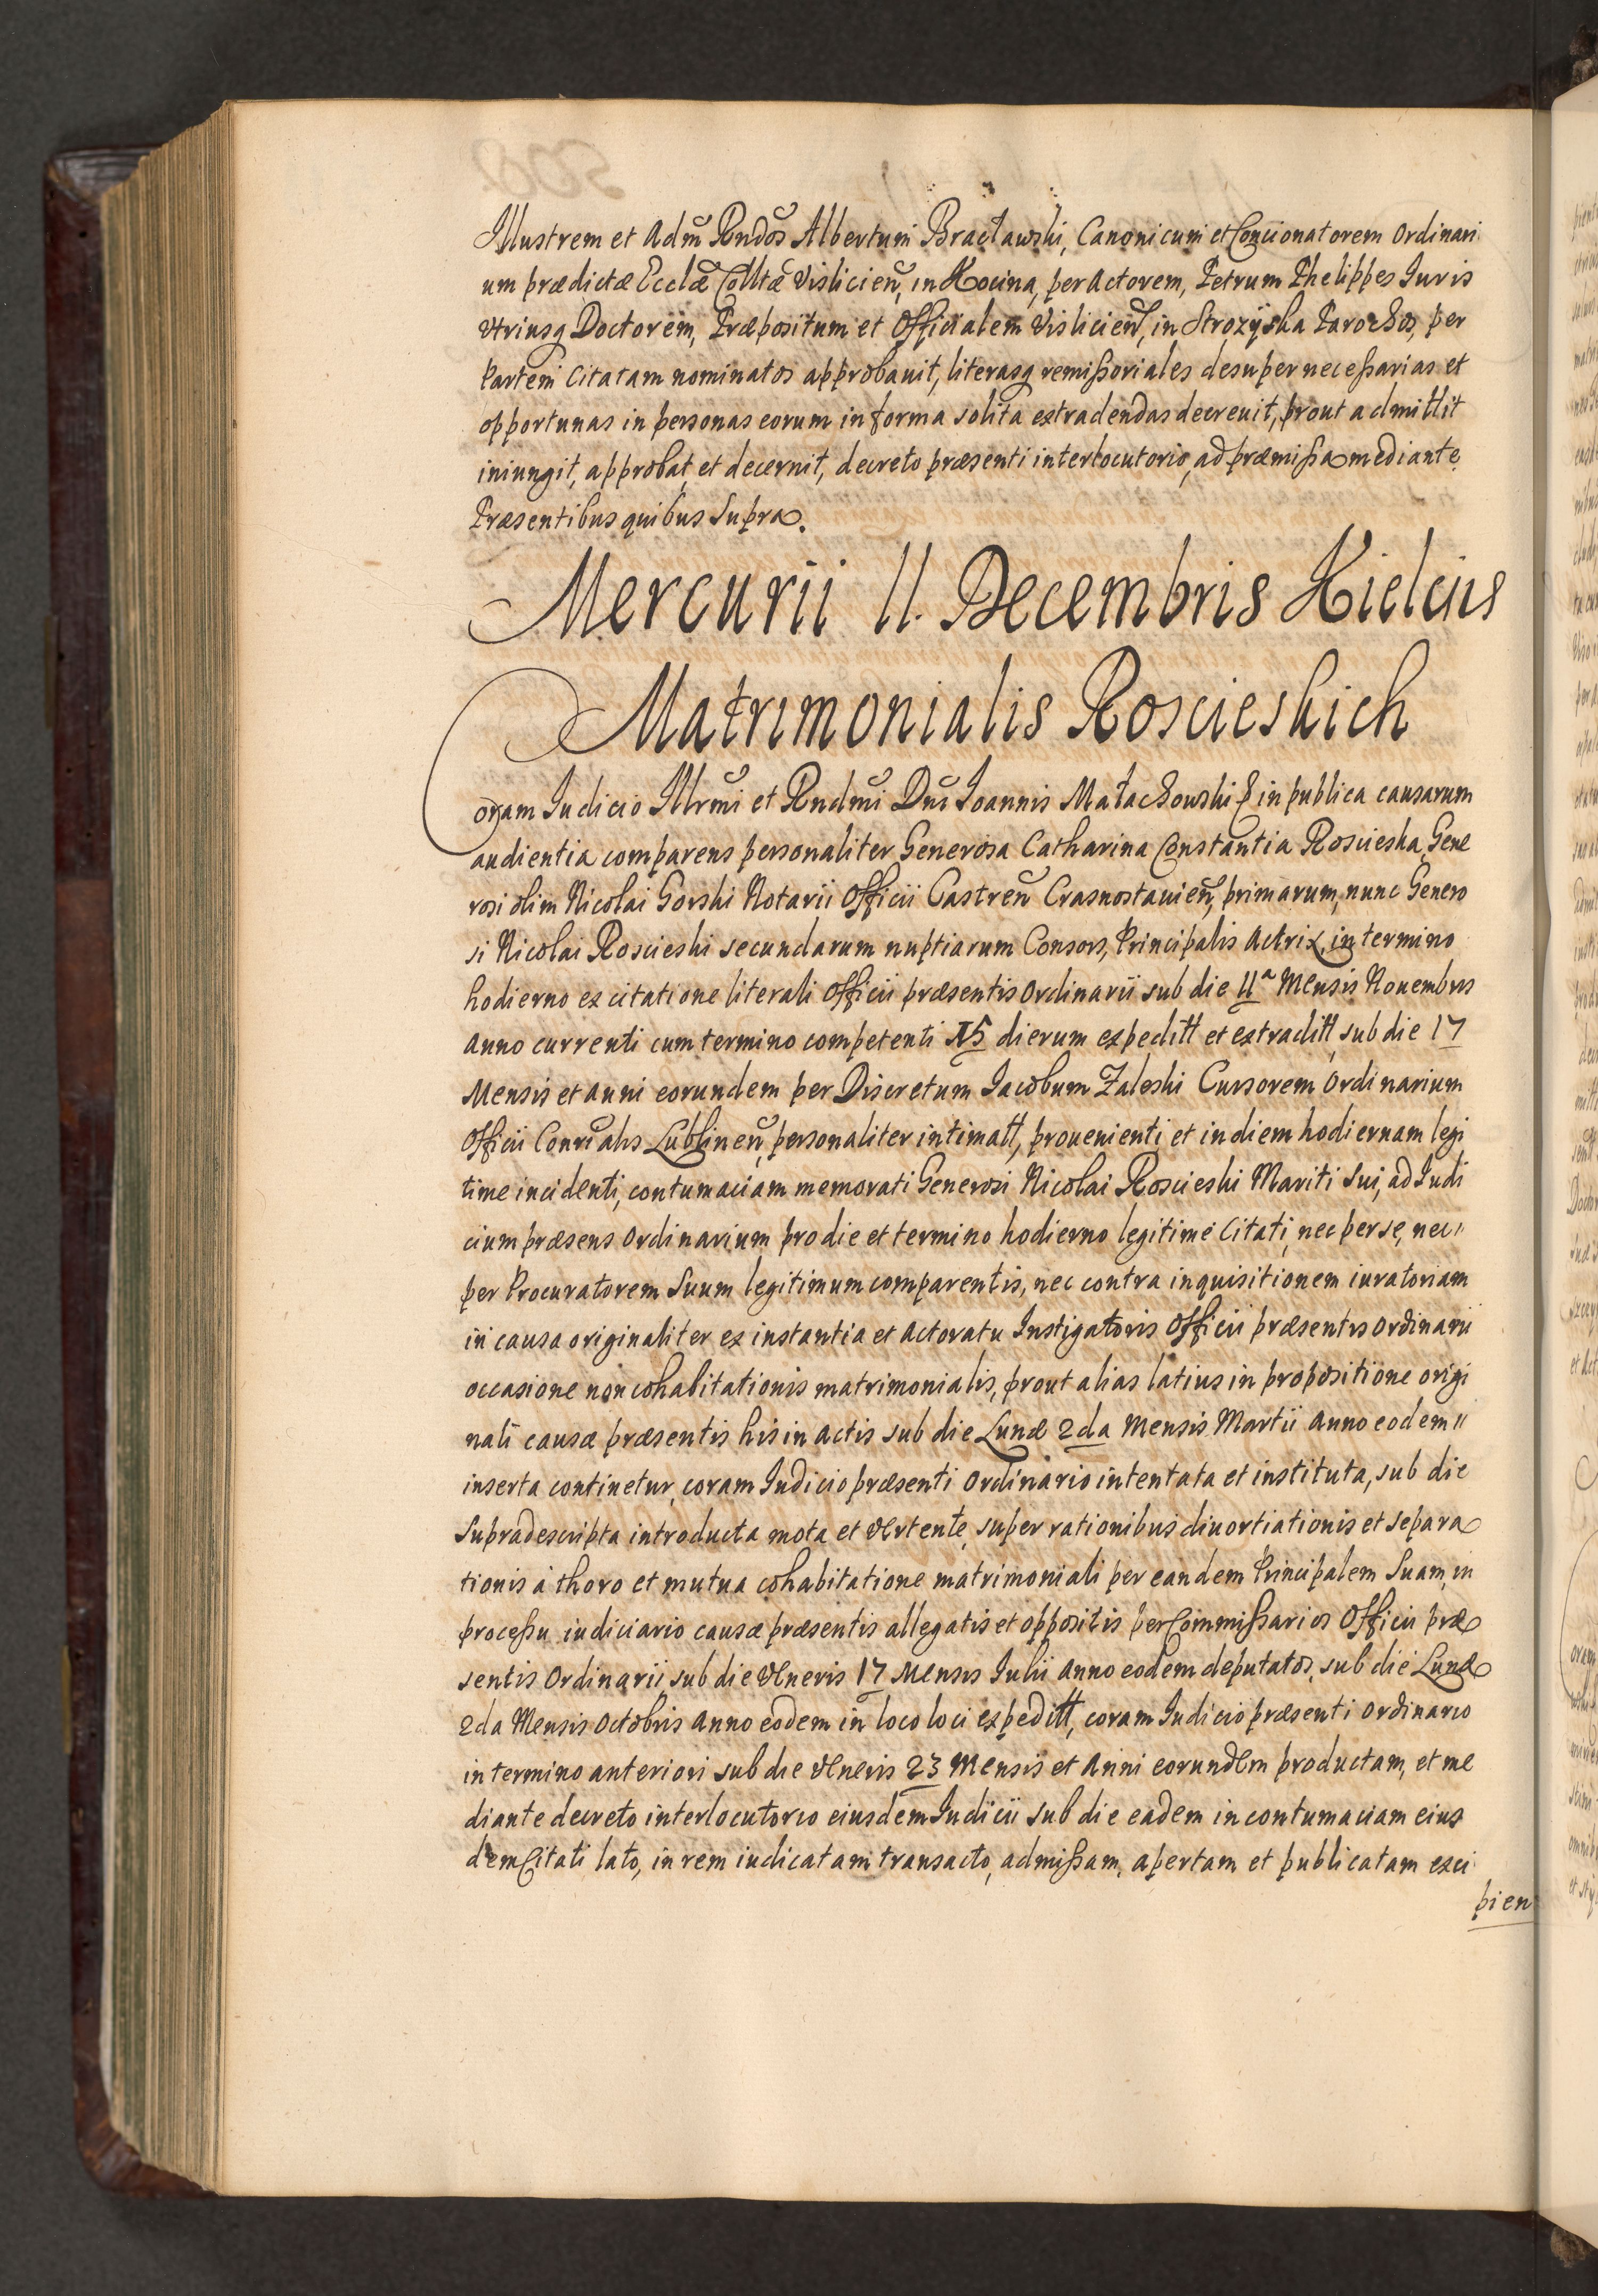 Illustrem et Adm̃ Rndos Albertum Bracławski, Canonicum et Concionatorem Ordinari
um prædictæ Ecclæ Colltæ Vislicien̄, in Kocina, per Actorem, Petrum Phelippes Iuris
Vtriusq Doctorem, Præpositum et Officialem Vislicien̄, in Strozÿska Parochos, per
Partem Citatam nominatos approbauit, literasq remißoriales desuper neceßarias et
opportunas in personas eorum in forma solita extradendas decreuit, prout admittit
iniungit, approbat, et decernit, decreto præsenti interlocutorio, ad præmißa mediante
Præsentibus quibus Supra.
Mercurii 11. Decembris Kielciis
Matrimonialis Roscieskich
Coram Iudicio Illrmi et Rndmi Dni Ioannis Małachowski & in publica causarum
audientia comparens personaliter Generosa Catharina Constantia Roscieska, Gene
rosi olim Nicolai Gorski Notarii Officii Castren̄ Crasnostauien̄, primarum, nunc Genero
si Nicolai Roscieski secundarum nuptiarum Consors, Principalis Actrix in termino
hodierno ex citatione literali Officii præsentis Ordinarii sub die 11ª Mensis Nouembris
Anno currenti cum termino competenti 15 dierum expeditt et extraditt, sub die 17
Mensis et anni eorundem per Discretum Iacobum Zaleski Cursorem Ordinarium
Officii Conrialis Lublinen̄, personaliter intimatt, prouenienti et in diem hodiernam legi
time incidenti, contumaciam memorati Generosi Nicolai Roscieski Mariti Sui, ad Iudi
cium præsens Ordinarium pro die et termino hodierno legitime Citati, nec per se, nec
per Procuratorem Suum legitimum comparentis, nec contra inquisitionem iuratoriam
in causa originaliter ex instantia et Actoratu Instigatoris Officii præsentis Ordinarii
occasione non cohabitationis matrimonialis, prout alias latius in propositione origi
nali causæ præsentis his in Actis sub die Lunæ 2da Mensis Martii Anno eodem
inserta continetur, coram Iudicio præsenti Ordinario intentata et instituta, sub die
Supradescripta introducta mota et vertente, super rationibus diuortiationis et separa
tionis à thoro et mutua cohabitatione matrimoniali per eandem Principalem Suam, in
proceßu iudiciario causæ præsentis allegatis et oppositis per Commißarios Officii præ
sentis Ordinarii, sub die Veneris 17 Mensis Iulii Anno eodem deputatos, sub die Lunæ
2da Mensis Octobris Anno eodem in loco loci expeditt, coram Iudicio præsenti Ordinario
in termino anteriori sub die Veneris 23 Mensis et Anni eorundem productam, et me
diante decreto interlocutorio eiusdem Iudicii sub die eadem in contumaciam eius
dem Citati lato, in rem iudicatam transacto, admißam, apertam et publicatam exci
pien